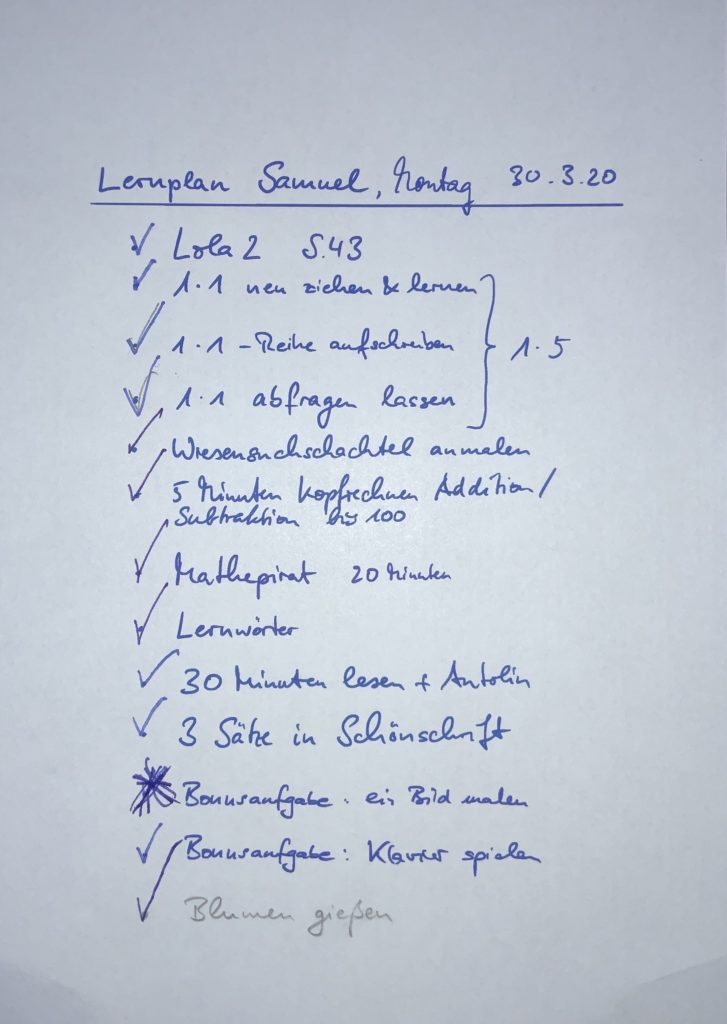 Lernplan Samuel, Montag 30.3.20
Lola 2 S.43
1·1 neu ziehen & lernen
1·1-Reihe aufschreiben
1·5
1·1 abfragen lassen
anmalen
5 Minuten Kopfrechnen Addition/
Subtraktion bis 100
Mathepirat 20 Minuten
Lernwörter
30 Minuten lesen + Antolin
3 Sätze in Schönschrift
Bonusaufgabe: ein Bild malen
Bonusaufgabe: Klavier spielen
Blumen gießen